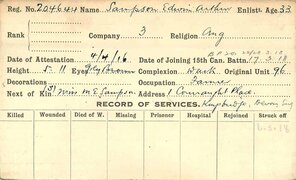 Reg. No. 204644 Name Sampson Edwin Arthur Enlistt. Age 33
Rank Company 3 Religion Ang
Date of Attestation 4/4/16 Date of Joining 15th Can. Battn. 17.3.18
Height 5-11 Eyes Complexion Dark Original Unit 96
Decorations Occupation Farmer
Next of Kin Miss M.E. Sampson Address 1 Connaught Place
RECORD OF SERVICES. Kingsbridge, Devon Eng
Killed Wounded Died of W. Missing Prisoner Hospital Rejoined Struck off